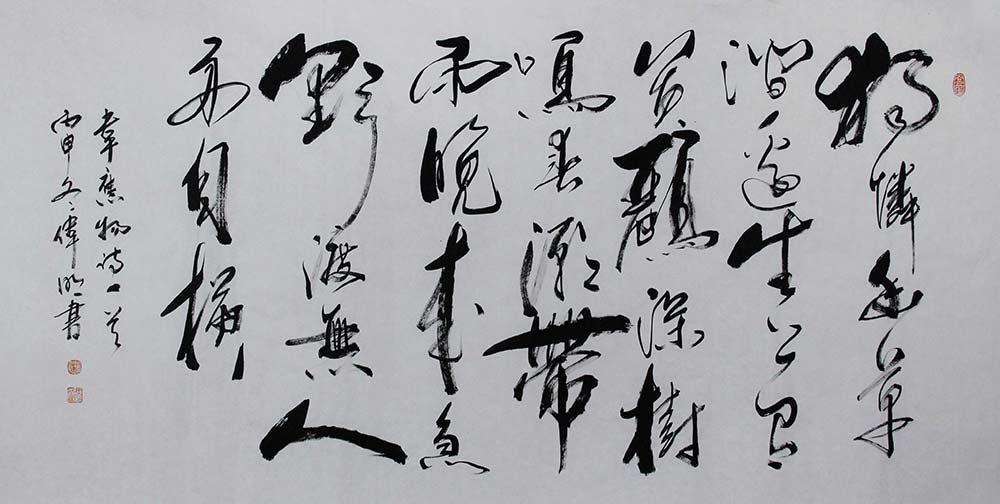 獨憐幽草
澗邊生上有
黄鸝深樹
鳴春潮帶
雨晚来急
野渡無人
舟自横
韋應物詩一首
丙申冬偉明書